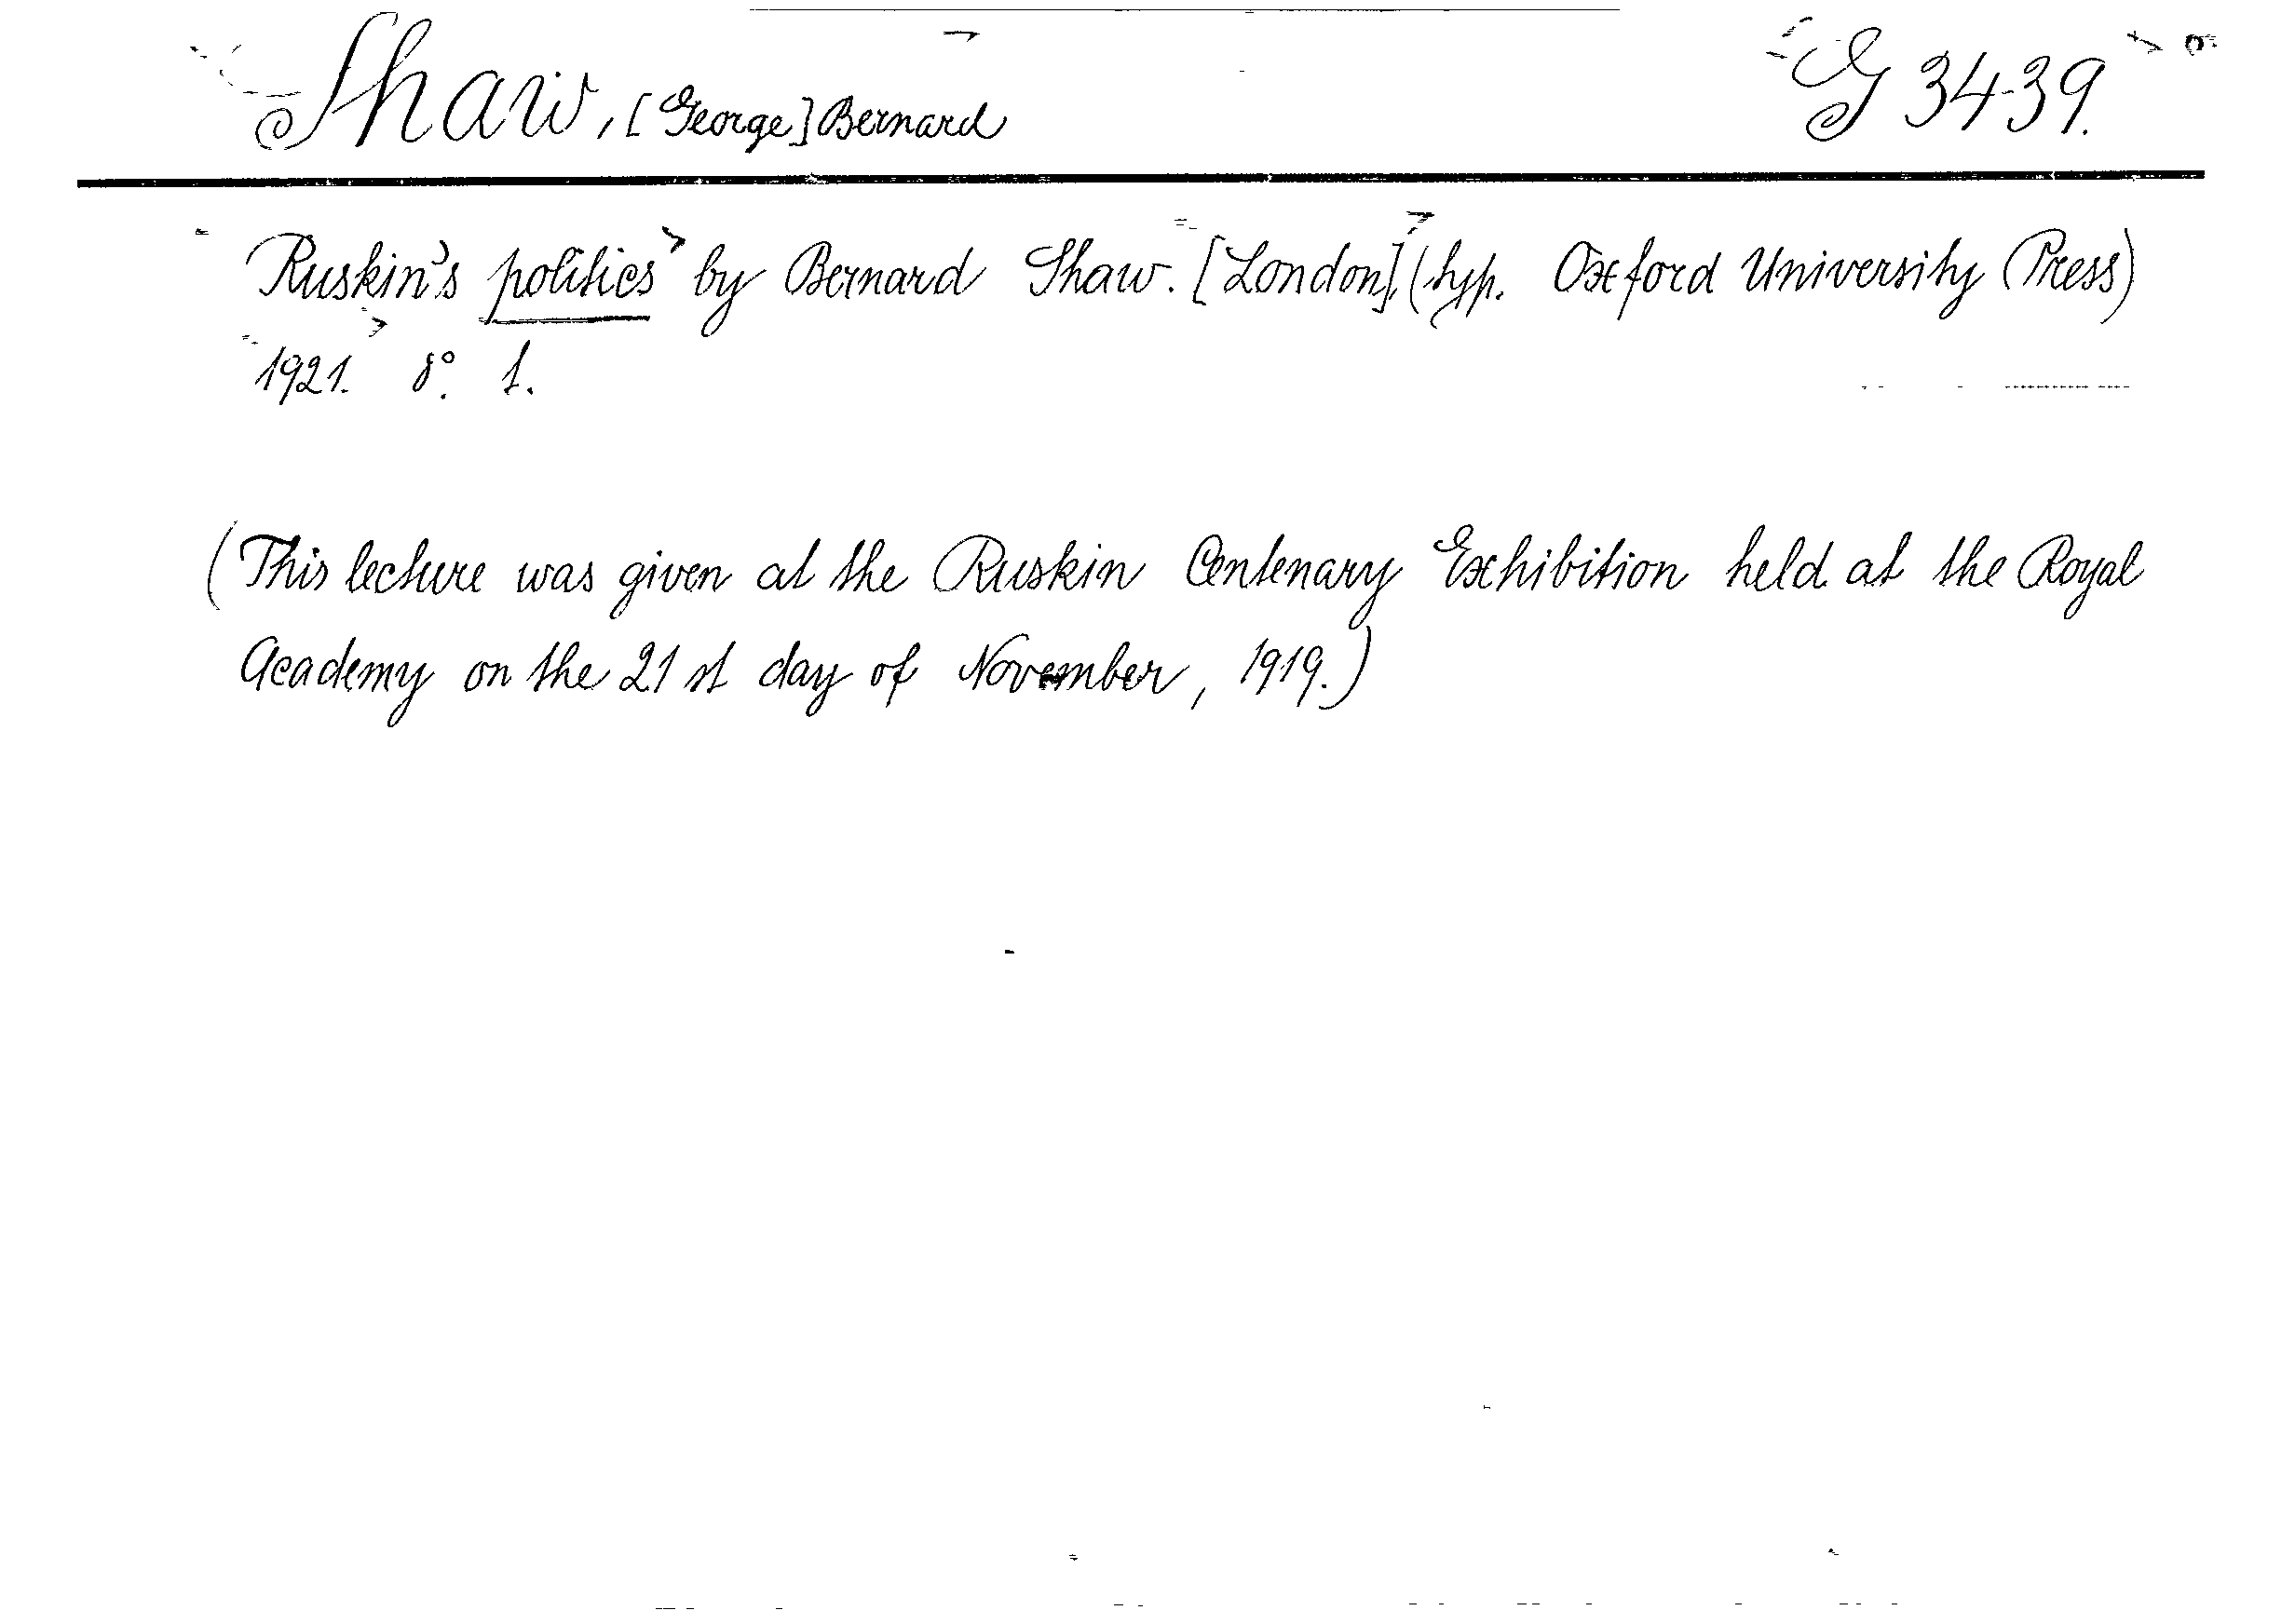 Shaw, [George] Bernard G 3439.
Ruskin's politics by Bernard Shaw. [London], (typ. Oxford University Press)
1921. 8°. 1.
(This lecture was given at the Ruskin Centenary Exhibition held at the Royal
Academy on the 21 st day of November, 1919.)